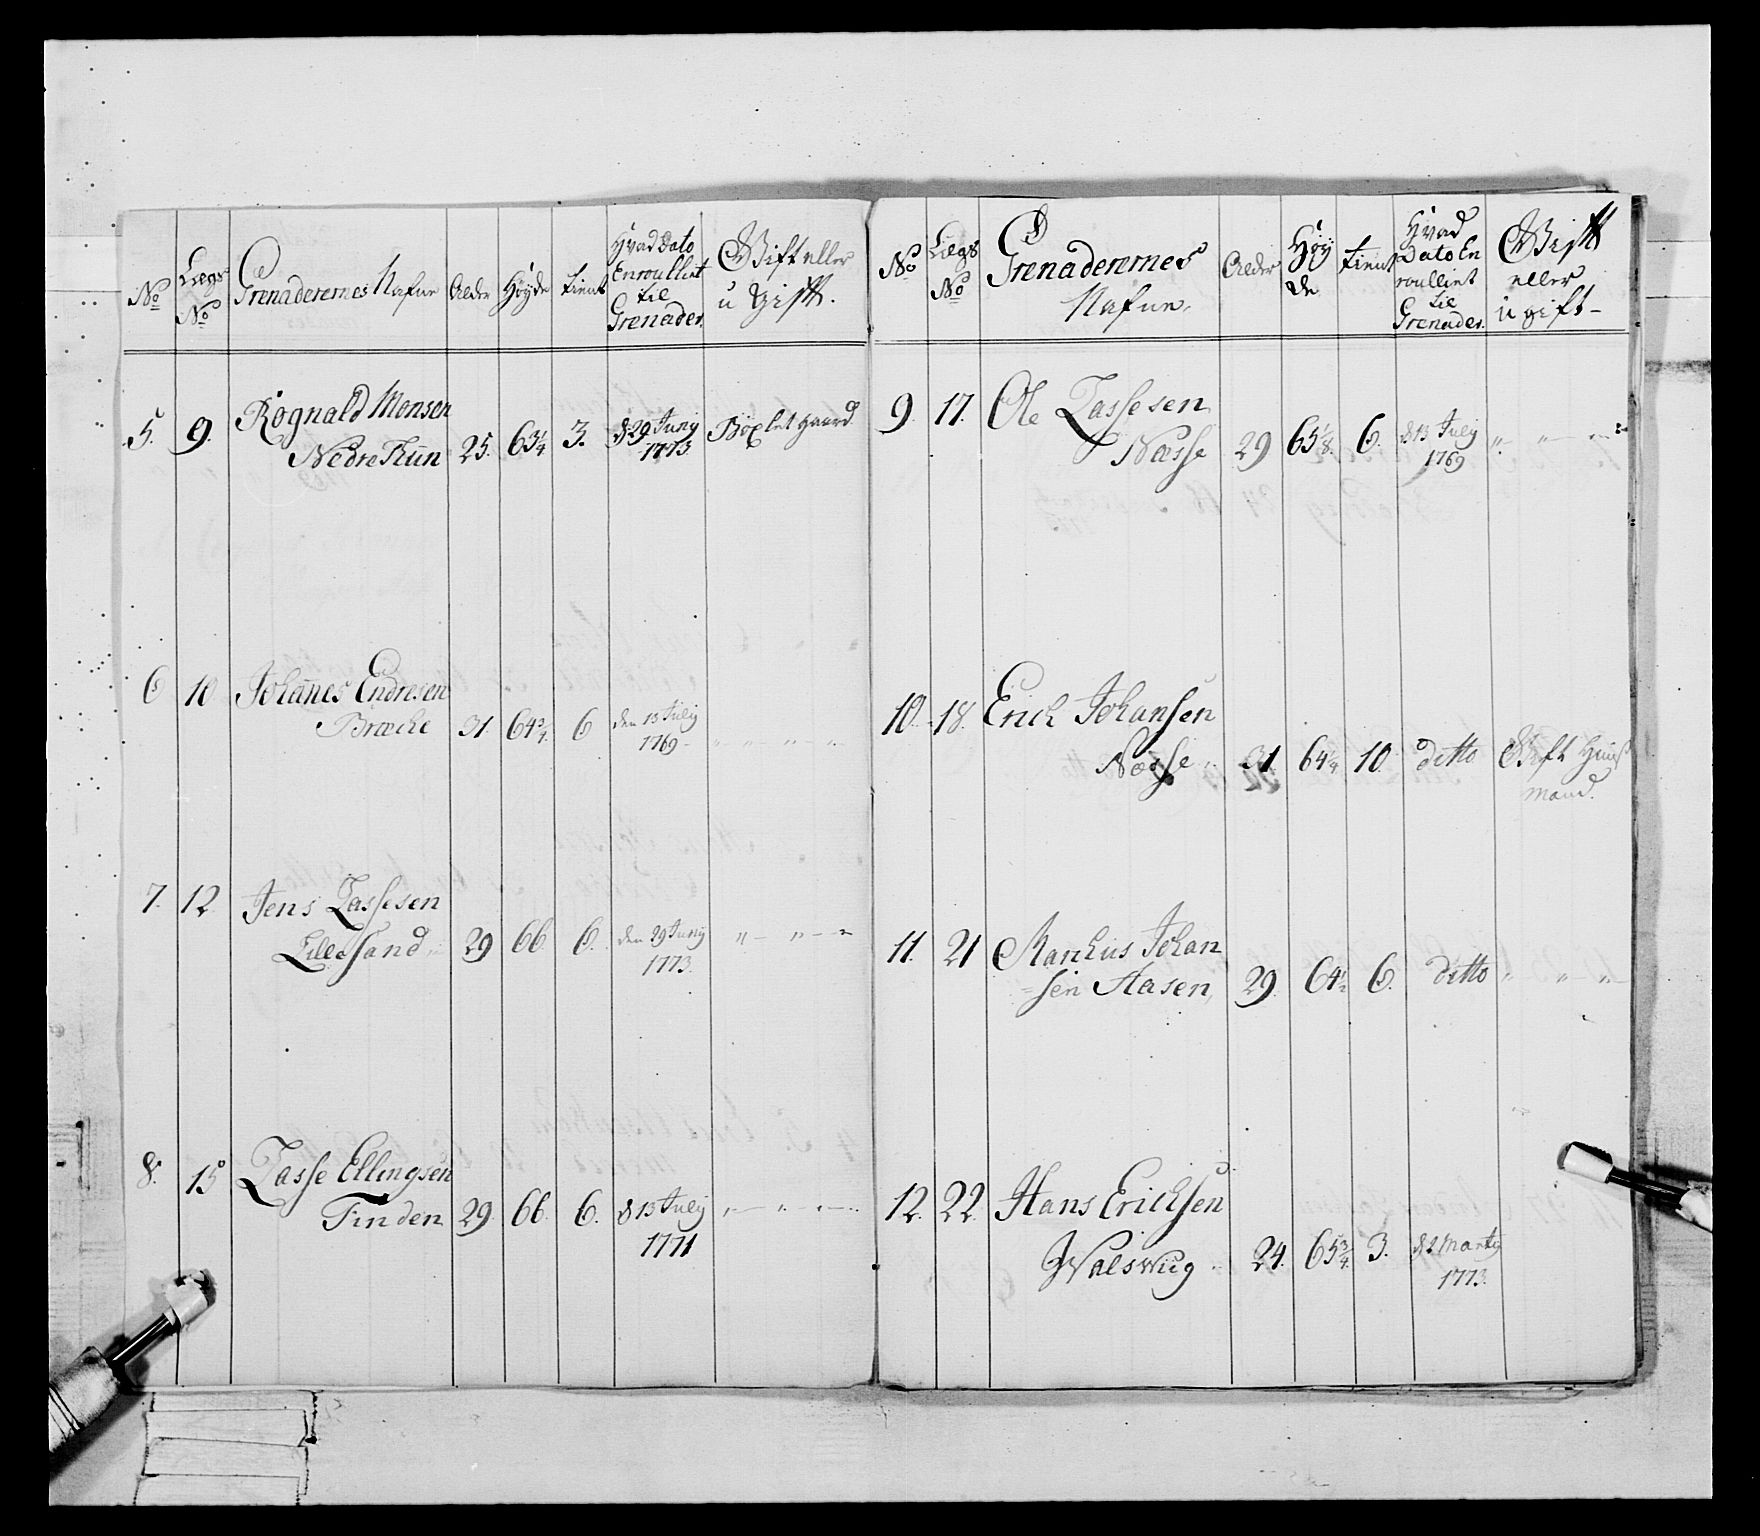 No
Lægs No
Grenaderernes Nafne
Alder
Høyde
tient
Hvad Dato
Enroullert
til
Grenader.
Gift eller
u gift.
5. 9. Rognald Monsen
Nedre Thun 25. 63¼ 3. d 29 Junÿ
1773. Bøxlet gaard
6 10 Johañes Endresen
Bræche 31. 64¾ 6 den 13 Julÿ
1769 - " " " "
7. 12 Jens Lassesen
Lille Sand 29 66. 6. den 29 Junÿ
1773. " - " - "
8. 15 Lasse Ellingsen
Finden 29 66. 6. d 13 Julÿ
1771 " - " - "
No
Lægs
No
Grenaderernes
Nafne.
Alder
Høy
de
tient
Hvad
Dato En
roulliret
til
Grenader.
Gift
eller
u gift -
9. 17. Ole Lassesen
Næsse 29 65⅛ 6. d 13 Julÿ
1769 " " - "
10. 18. Erich Johansen
Næsse 31 64¼ 10. ditto Gift Huus
mand.
11. 21 Johan
sen Aasen, 29. 64½ 6. ditto " " "
12. 22. Hans Erichsen
24. 65¾ 3. d 2 Martÿ
1773.